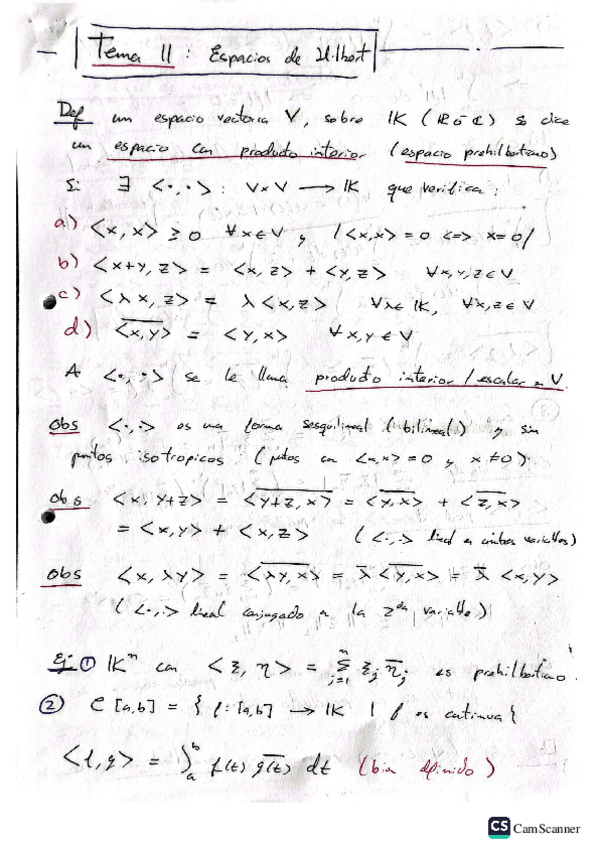 Tema 11: Espacios de Hilbert
Def un espacio vectorial V, sobre IK (IR ó ₵) se dice
un espacio con producto interior (espacio prehilbertiano)
Si ∃ <·,·> : V×V → IK que verifica:
a) <x, x> ≥ 0 ∀x∈V y /<x,x> = 0 <=> x=0/
b) <x+y, z> = <x, z> + <y, z> ∀x,y,z∈V
c) <λx, z> = λ<x,z> ∀λ∈ IK, ∀x,z∈V
d) <x,y>̅ = <y,x> ∀x,y∈V
A <·,·> se le llama producto interior/escalar en V.
Obs <·,·> es una forma sesquilineal (bilineal) y sin
puntos isotropicos. (ptos con <x,x>=0 y x≠0).
Obs <x, y+z> = \overline{<y+z, x>} = \overline{<y,x>} + \overline{<z,x>}
= <x,y> + <x,z> (<·,·> lineal en ambas variables)
obs <x, λy> = \overline{<λy, x>} = λ̅ \overline{<y,x>} = λ̅ <x,y>
(<·,·> lineal conjugado en la 2ᵈᵃ variable)
Ej: ① IKⁿ con <ξ, η> = Σ_{j=1}^{n} ξⱼ η̅ⱼ es prehilbertiano.
② C[a,b] = { f: [a,b] → IK | f es continua{
<f,g> = ∫ₐᵇ f(t) \overline{g(t)} dt (bien definido)
CS CamScanner